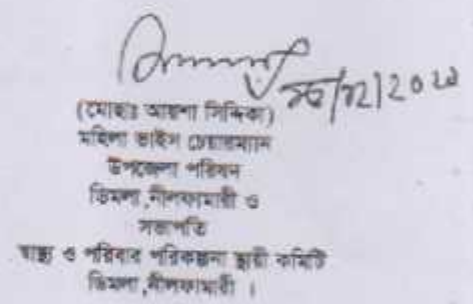 ২৮/১২/২০২১
(মোছাঃ আয়শা সিদ্দিকা)
মহিলা ভাইস চেয়ারম্যান
উপজেলা পরিষদ
ডিমলা ,নীলফামারী ও
সভাপতি
স্বাস্থ্য ও পরিবার পরিকল্পনা স্থায়ী কমিটি
ডিমলা ,নীলফামারী ।